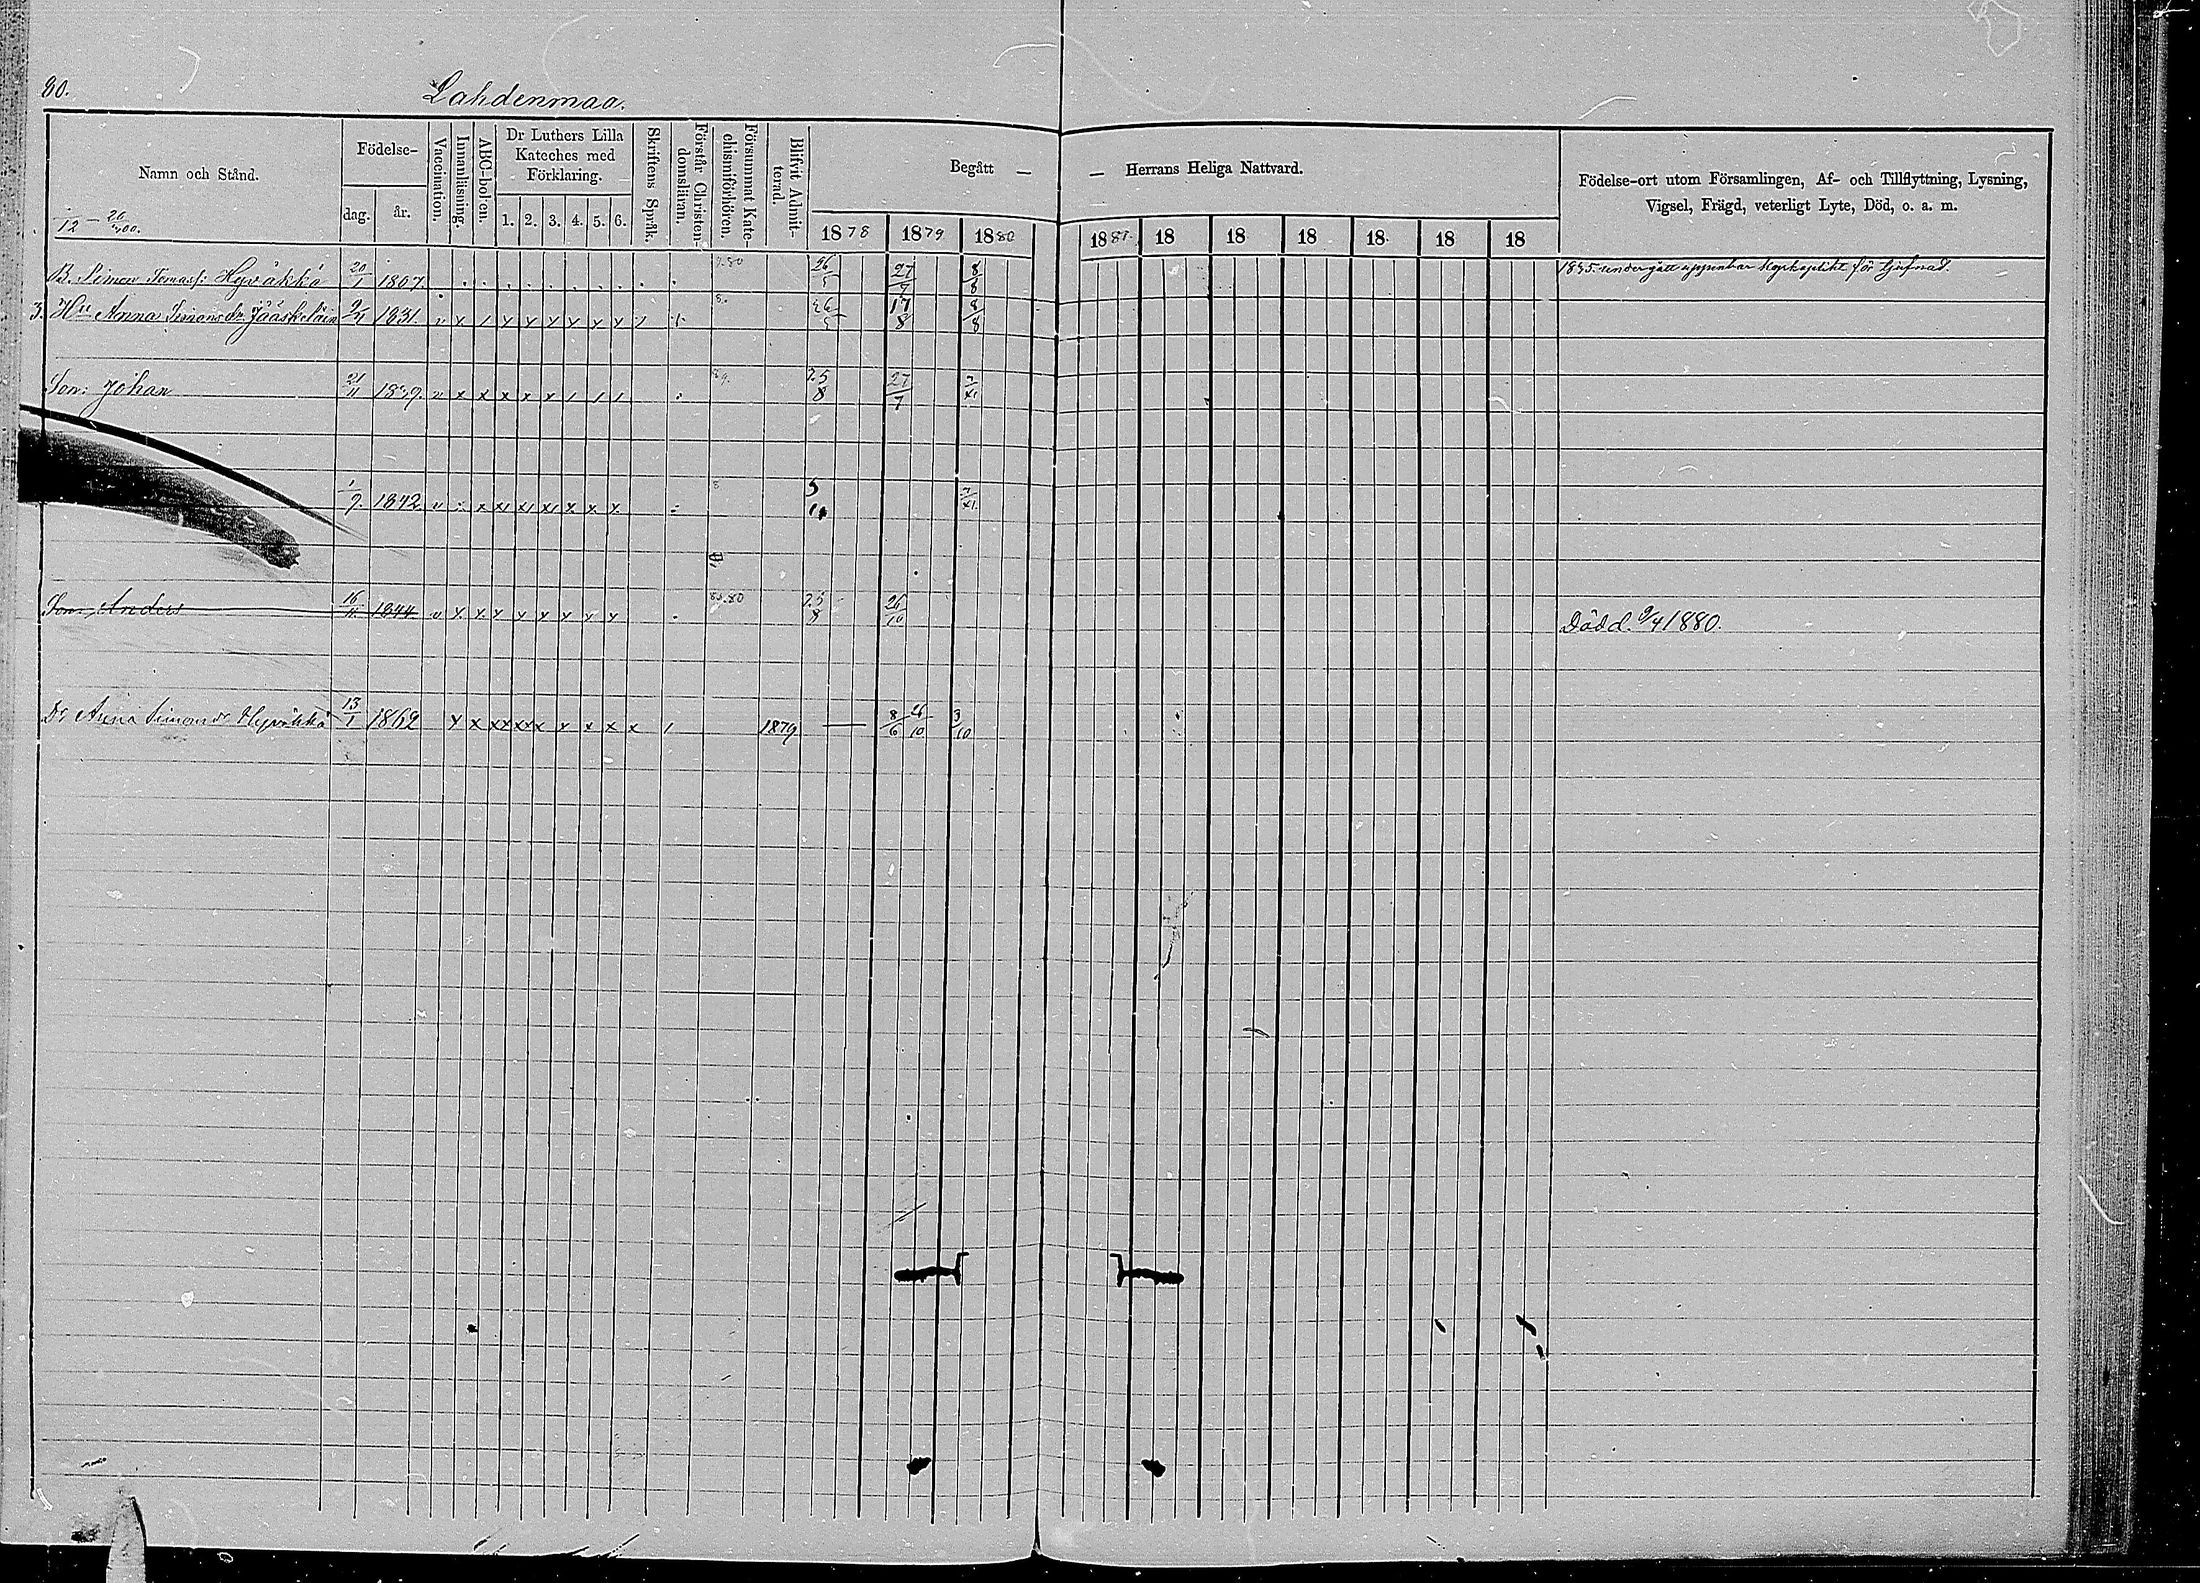 80.
Lahdenmaa.
Namn och Stånd.
Födelse-
dag.
år.
Vaccination.
Innanläsning.
ABC-boken.
Dr Luthers Lilla
Kateches med
Förklaring.
1. 2. 3. 4. 5. 6.
Skriftens Språk.
Förstår Christen-
domsläran.
Försummat Kate-
chismiförhören.
Blifvit Admit-
terad.
Begått — — Herrans Heliga Nattvard.
1878 1879 1880 1881 18 18 18 18 18 18
Födelse-ort utom Församlingen, Af- och Tillflyttning, Lysning,
Vigsel, Frägd, veterligt Lyte, Död, o. a. m.
B. Simon Tomass: Hyväkkä 20/1 1807. 26/5 27/7 8/8
3. Hu Anna Simonsdr Jääskeläin 1831. 26/5 17/8 8/8
Son: Johan 21/11 25/8 27/7 7/XI
1/9. 1842 7/XI
Son: Anders 16/11 1844 25/8 26/10 Död d. 9/4 1880.
Dr Anna Simonsdr Hyväkkä 13/1 1862 1879 — 8/6 26/10 3/10